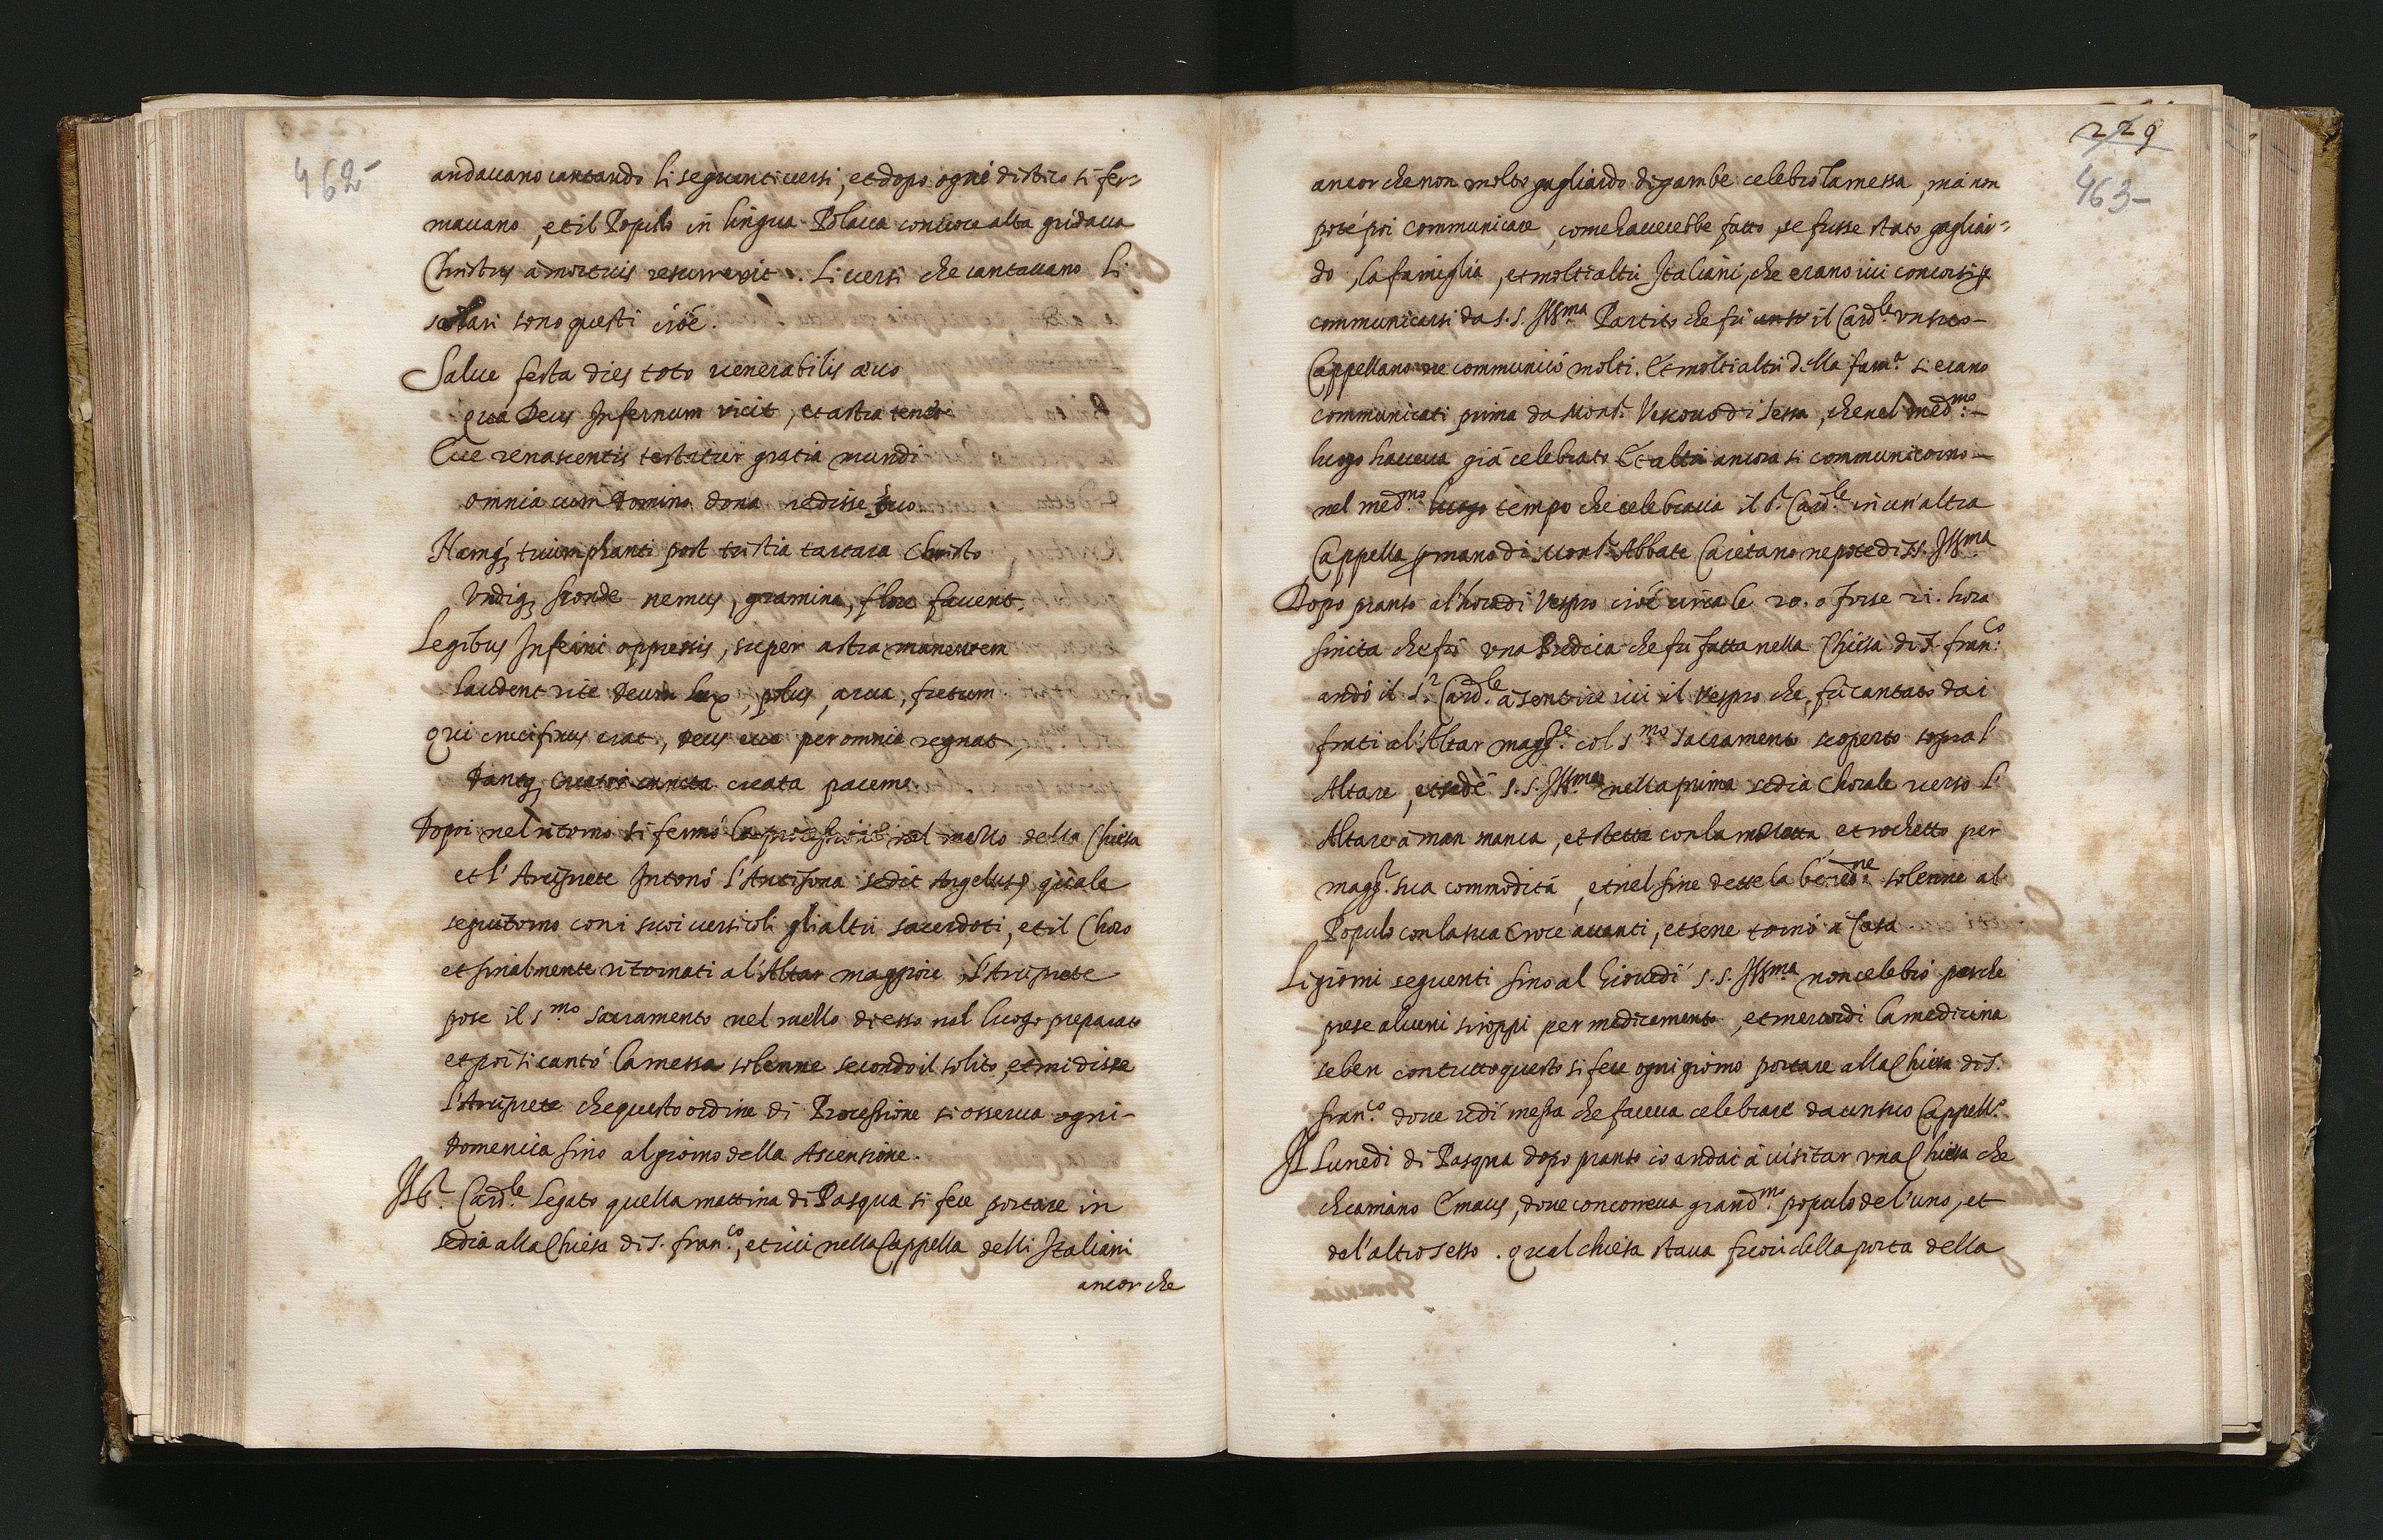 462
andauano cantando li seguenti uersi, et dopo ogni distico si fer=
mauano, et il Populo in lingua Polacca con uoce alta gridaua
Christus a mortuis resurrexit. Li uersi che cantauano li
scolari sono questi cioè.
Salue festa dies toto uenerabilis æuo
qua Deus Infernum vicit, et astra tenet
Ecce renascentis testatur gratia mundi
omnia cum Domino dona redisse suo
Namq; triumphanti post tristia tartara Christo
Vndiq; fronde nemus, gramina, flore fauent.
Legibus Inferni oppressis, super astra meantem
laudent rite Deum lux, polus, arua, fretum
Qui crucifixus erat, Deus ecce per omnia regnat,
Dantq; Creatori cuncta creata precem
Dopoi nel ritorno si fermò la processione nel mezzo della Chiesa
et l'Arciprete Intonò l'Antifona sedit Angelus, quale
seguitorno con i suoi uersicoli gli altri sacerdoti, et il Choro
et finalmente ritornati a l'Altar maggiore, l'Arciprete
pose il s.mo Sacramento nel mezzo di esso nel luogo preparato
et poi si cantò la messa solenne secondo il solito, et mi disse
l'Arciprete che questo ordine di Processione si osserua ogni-
Domenica fino al giorno della Ascensione.
Il S.r Card.le Legato quella mattina di Pasqua si fece portare in
sedia alla Chiesa di S. fran.co, et iui nella Cappella delli Italiani
ancor che
229
463
ancor che non molto gagliardo di gambe celebrò la messa, mà non
poté poi communicare, come hauerebbe fatto, se fusse stato gagliar=
do, la famiglia, et molti altri Italiani, che erano iui concorsi p
communicarsi da S.S. Ill.ma Partito che fù il Card.le un suo
Cappellano ne communicò molti. Et molti altri della fam.a si erano
communicati prima da Mons.r Vescouo di Sessa, che nel med.mo
luogo haueua già celebrato Et altri ancora si communicorno
nel med.mo luogo tempo che celebraua il S.r Card.le in un'altra
Cappella p mano di Mons.r Abbate Caietano nepote di S.S. Ill.ma
Dopo pranso al'hora di Vespro cioè circa le 20. o forse 21. hora
finita che fù una Predica che fu fatta nella Chiesa di S. fran.co
andò il S.r Card.le a sentire iui il Vespro che fù cantato da i
frati al'Altar magg.re col s.mo Sacramento scoperto sopra l'
Altare, et sedè S.S. Ill.ma nella prima sedia Chorale uerso l'
Altare à man manca, et stette con la mozzetta et rochetto per
magg.r sua commodità, et nel fine dette la bened.ne solenne al
Populo con la sua Croce auanti, et se ne tornò à Casa.
Li giorni seguenti fino al Giouedì S.S. Ill.ma non celebrò perche
prese alcuni siroppi per medicamento, et mercordì la medicina
se ben con tutto questo si fece ogni giorno portare alla Chiesa di S.
fran.co doue udì messa che faceua celebrare da un suo Cappell.o
Il Lunedì di Pasqua dopo pranso io andai à uisitar una Chiesa che
chiamano Emaus, doue concorreua grand.mo populo de l'uno, et
de l'altro sesso. qual chiesa staua fuori della porta della